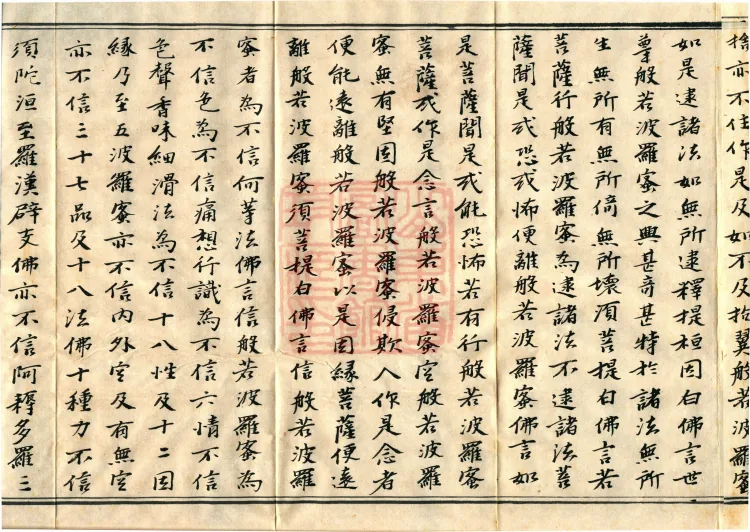 捨亦不住作是及如不及拘翼般若波羅蜜
如是逮諸法如無所逮釋提桓因白佛言世
尊般若波羅蜜之典甚奇甚特於諸法無所
生無所有無所倚無所壞須菩提白佛言若
菩薩行般若波羅蜜為逮諸法不逮諸法菩
薩聞是或恐或怖便離般若波羅蜜佛言如
是菩薩聞是或能恐怖若有行般若波羅蜜
菩薩或作是念言般若波羅蜜空般若波羅
蜜無有堅固般若波羅蜜侵欺人作是念者
便能遠離般若波羅蜜以是因緣菩薩便遠
離般若波羅蜜須菩提白佛言信般若波羅
蜜者為不信何等法佛言信般若波羅蜜為
不信色為不信痛想行識為不信六情不信
色聲香味細滑法為不信十八性及十二因
緣乃至五波羅蜜亦不信內外空及有無空
亦不信三十七品及十八法佛十種力不信
須陀洹至羅漢辟支佛亦不信阿耨多羅三